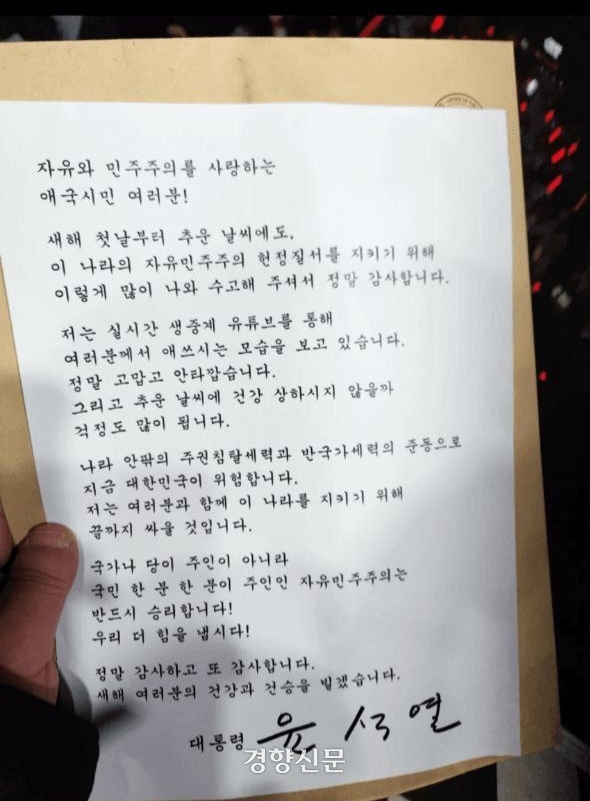 OFFICE OF THE
자유와 민주주의를 사랑하는
애국시민 여러분!
새해 첫날부터 추운 날씨에도,
이 나라의 자유민주주의 헌정질서를 지키기 위해
이렇게 많이 나와 수고해 주셔서 정말 감사합니다.
저는 실시간 생중계 유튜브를 통해
여러분께서 애쓰시는 모습을 보고 있습니다.
정말 고맙고 안타깝습니다.
그리고 추운 날씨에 건강 상하시지 않을까
걱정도 많이 됩니다.
나라 안팎의 주권침탈세력과 반국가세력의 준동으로
지금 대한민국이 위험합니다.
저는 여러분과 함께 이 나라를 지키기 위해
끝까지 싸울 것입니다.
국가나 당이 주인이 아니라
국민 한 분 한 분이 주인인 자유민주주의는
반드시 승리합니다!
우리 더 힘을 냅시다!
정말 감사하고 또 감사합니다.
새해 여러분의 건강과 건승을 빌겠습니다.
대통령 윤석열
경향신문